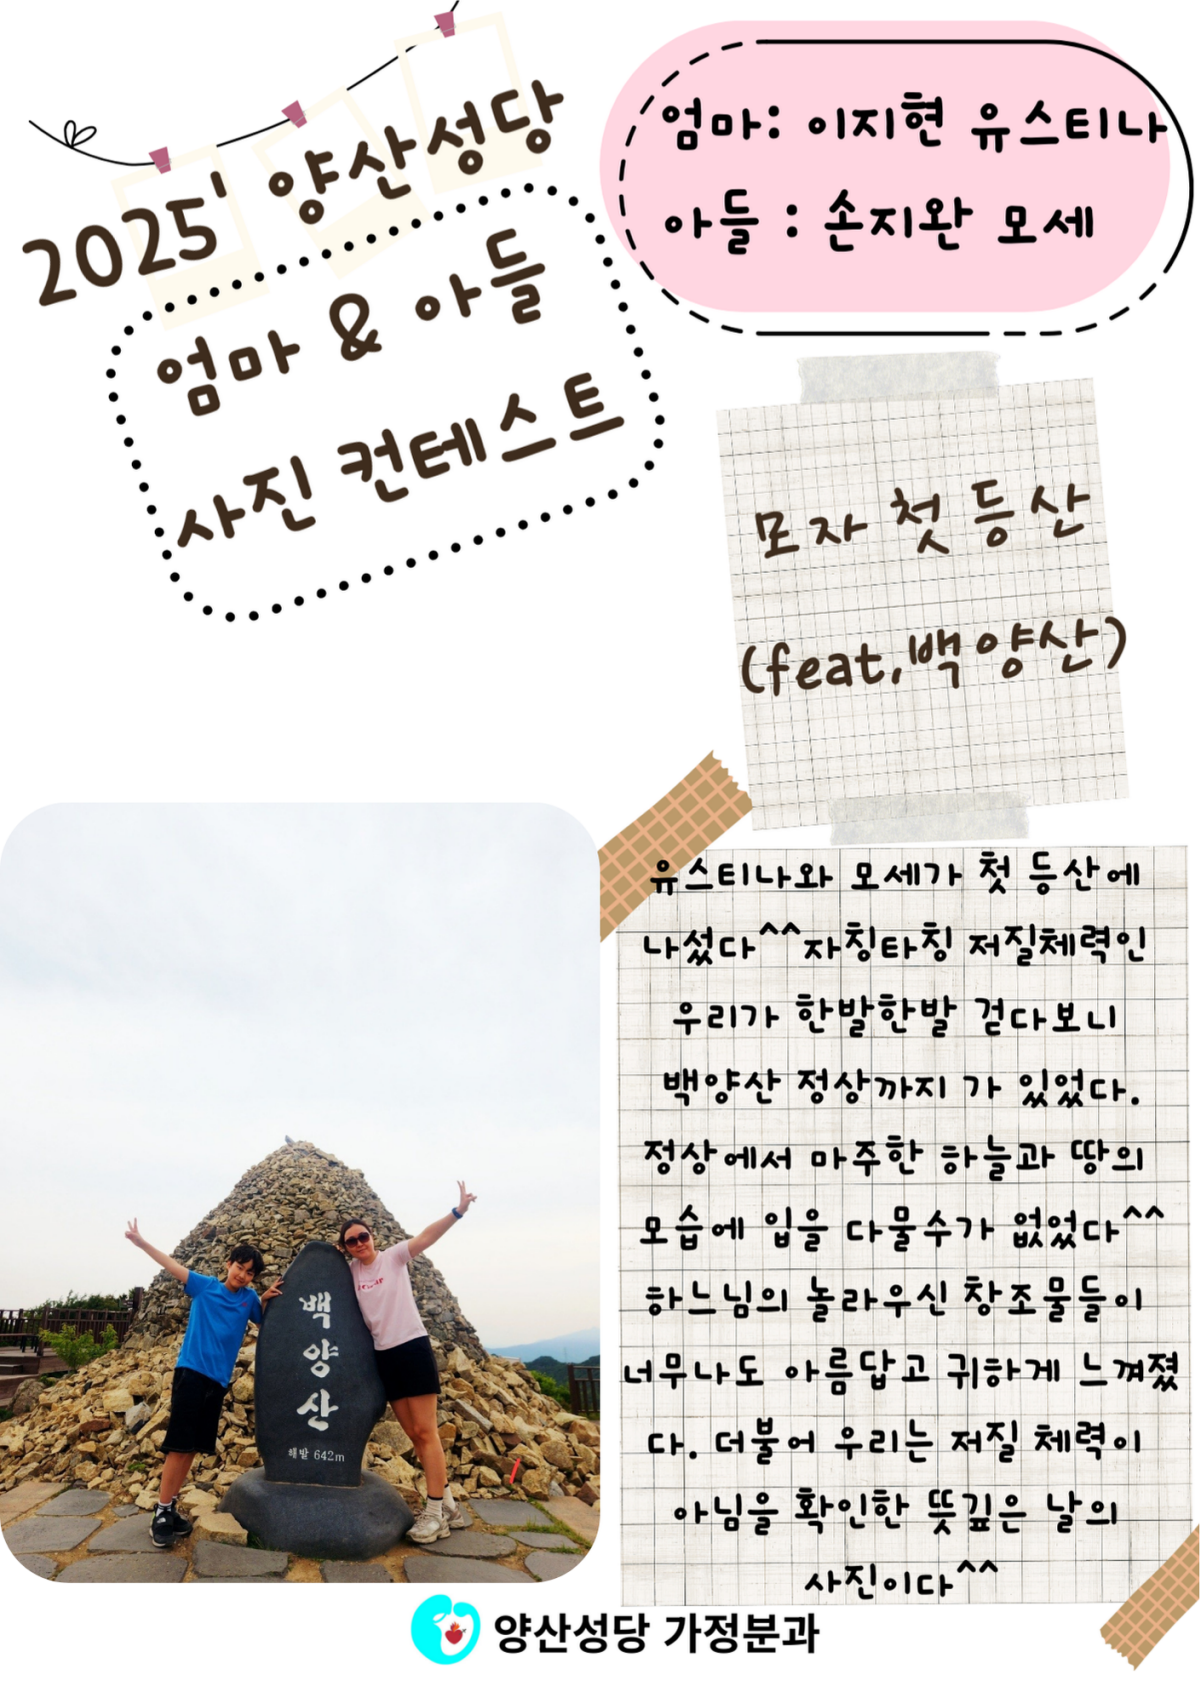 2025' 양산성당
엄마 & 아들
사진 컨테스트
엄마: 이지현 유스티나
아들 : 손지완 모세
모자 첫 등산
(feat.백양산)
유스티나와 모세가 첫 등산에
나섰다^^자칭타칭 저질체력인
우리가 한발한발 걷다보니
백양산 정상까지 가 있었다.
정상에서 마주한 하늘과 땅의
모습에 입을 다물수가 없었다^^
하느님의 놀라우신 창조물들이
너무나도 아름답고 귀하게 느껴졌
다. 더불어 우리는 저질 체력이
아님을 확인한 뜻깊은 날의
사진이다^^
백
양
산
해발 642m
양산성당 가정분과